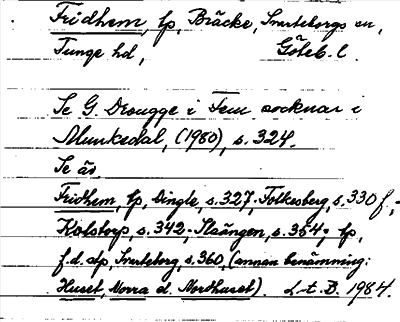 Fridhem, lp, Bräcke, Svarteborgs sn,
Tunge hd, Göteb. l.
Se G. Drougge i Fem socknar i
Munkedal, (1980), s. 324.
Se äv.
Fridhem, lp, Dingle, s. 327, Folkesberg, s. 330 f,
Kolstorp, s. 342, Slängen, s. 354, lp,
f.d. alp, Svarteborg, s. 360, (annan benämning:
Huset, Norra d. Nordhuset). L t. B. 1984.